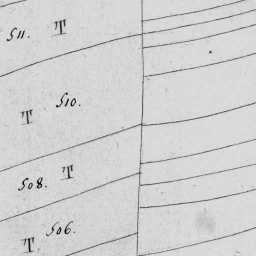 511. T
510.
T
T
508.
506.
T